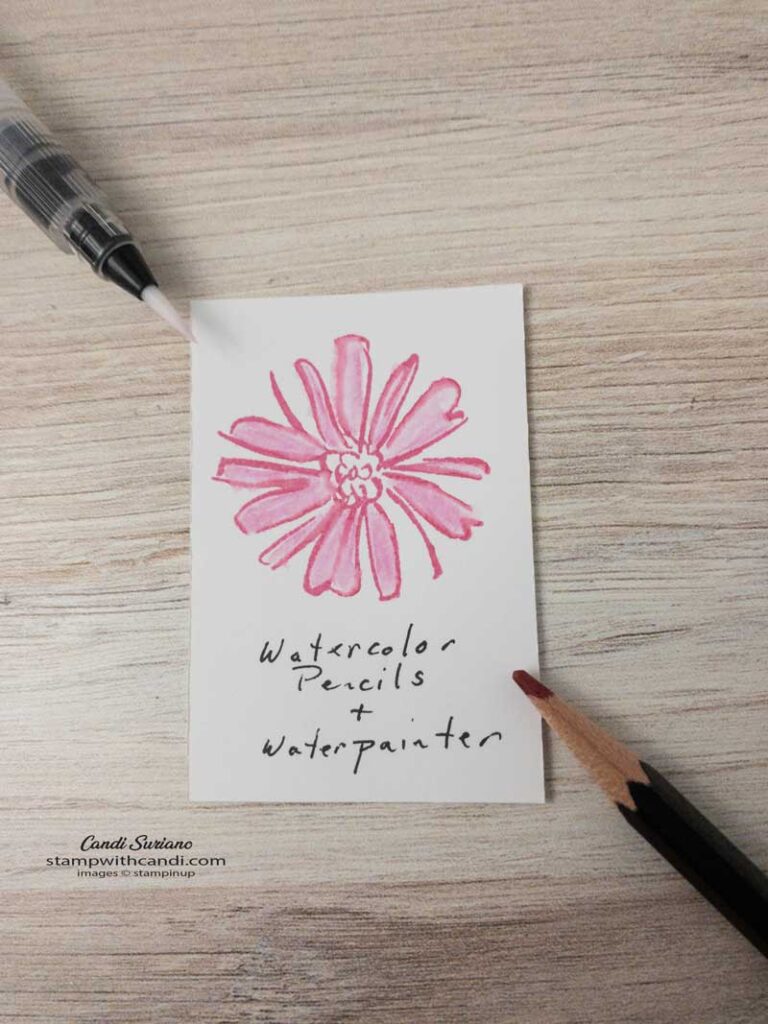 Watercolor
Pencils
+
Waterpainter
Candi Suriano
stampwithcandi.com
images © stampinup